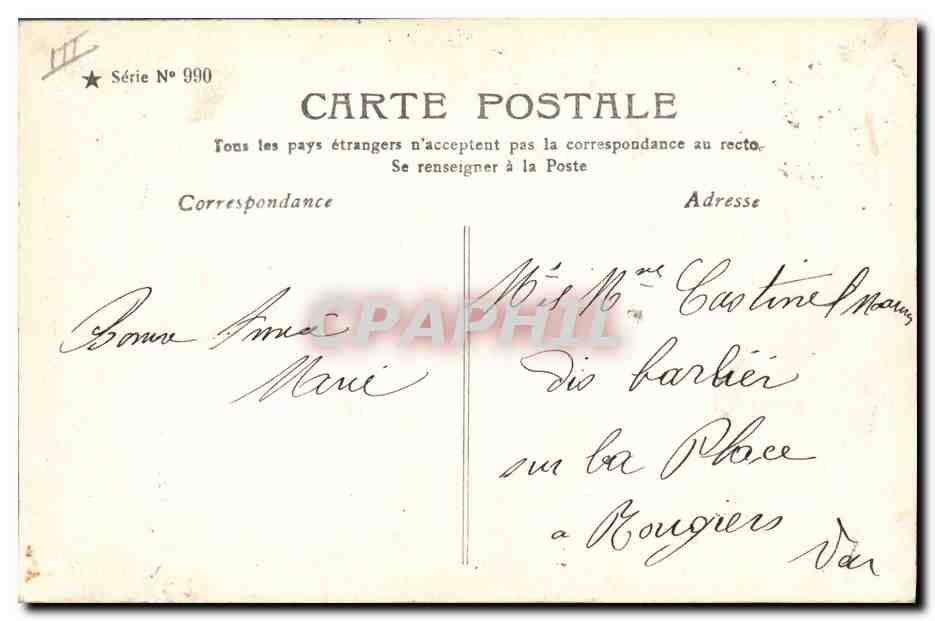 III
★ Série Nº 990
CARTE POSTALE
Tous les pays étrangers n'acceptent pas la correspondance au recto.
Se renseigner à la Poste
Correspondance
Adresse
Bonne
Marie
CPAPHIL
Mr et Mme Castinel
dis barbier
sur la Place
a Rougiers
Var